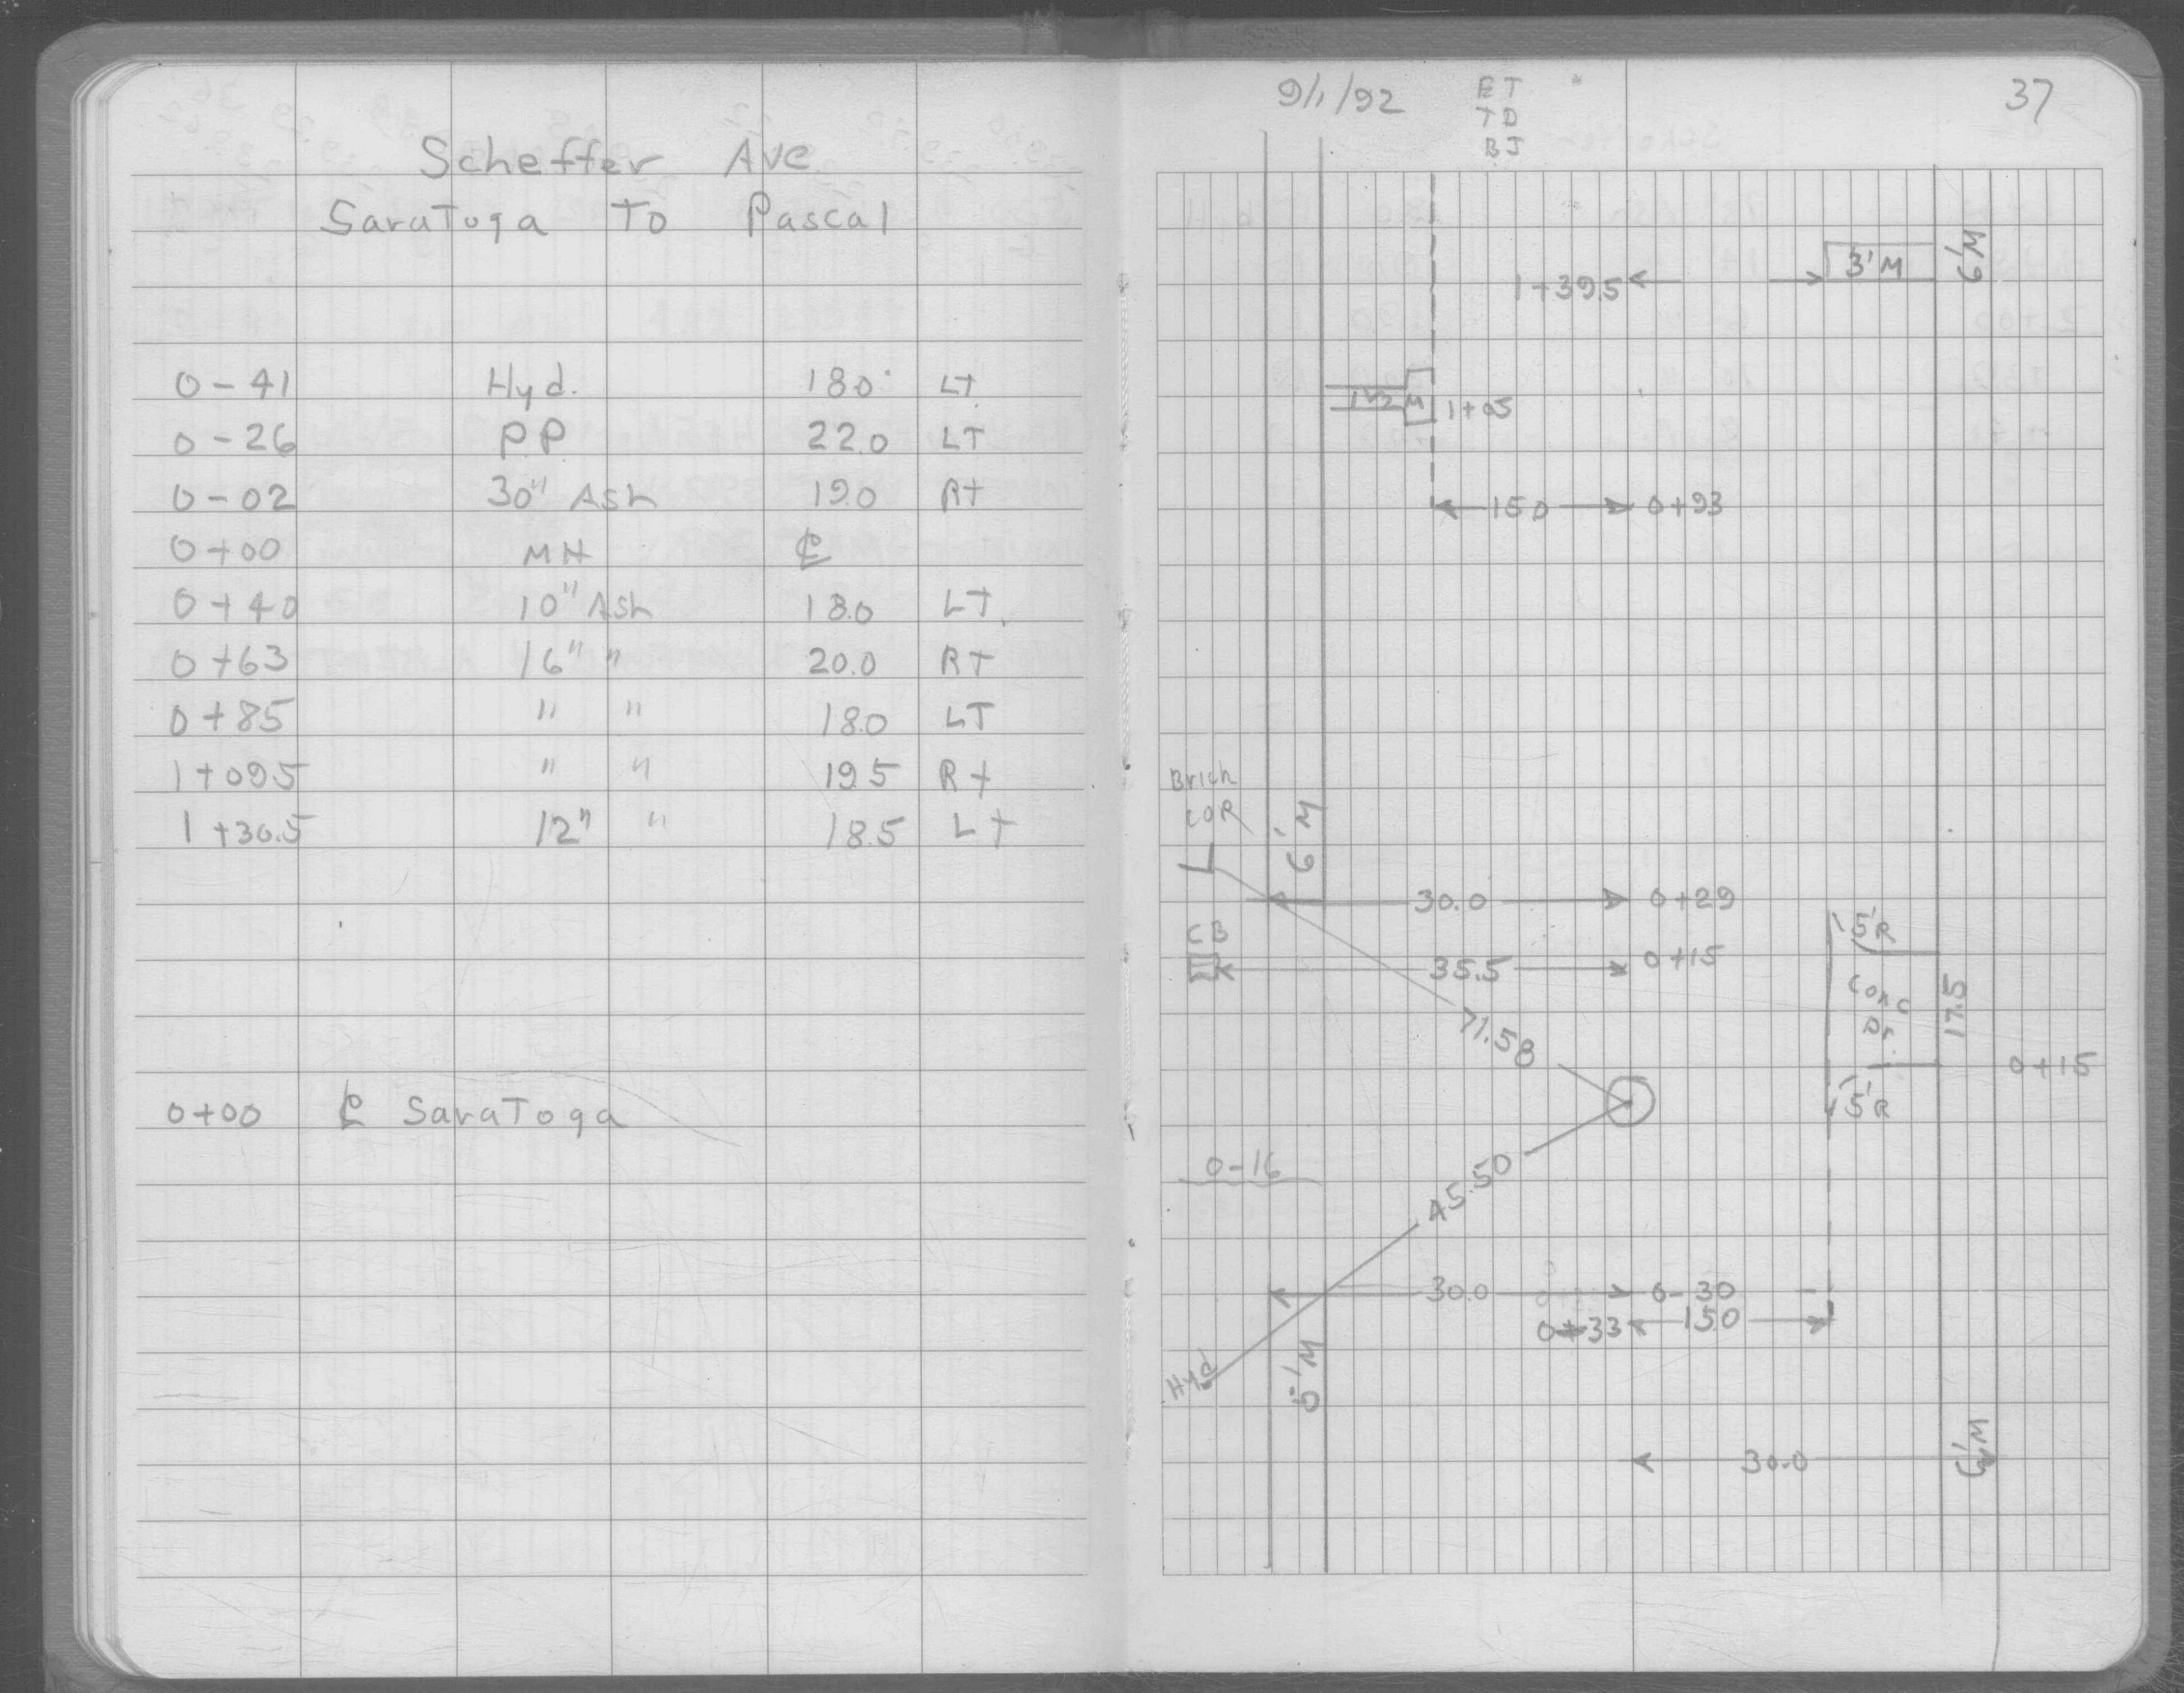 Scheffer Ave
SaraToga To Pascal
0-41 Hyd. 18.0 LT
0-26 PP 22.0 LT
0-02 30" Ash 19.0 Rt
0+00 MH ℄
0+40 10" Ash 18.0 LT.
0+63 16" " 20.0 RT
0+85 " " 18.0 LT
1+09.5 " " 19.5 Rt
1+30.5 12" " 18.5 Lt
0+00 ℄ SaraToga
9/1/92 ET 37
TD
BJ
3'M 6'M
1+39.5
1 1/2 M 1+05
15.0 0+93
Brick
COR
6'M
30.0 0+29
5'R
CB
35.5 0+15
Conc
Dr.
17.5
71.58
0+15
5'R
0-16
45.50
30.0 0-30
0-33 15.0
Hyd
6'M
6'M
30.0